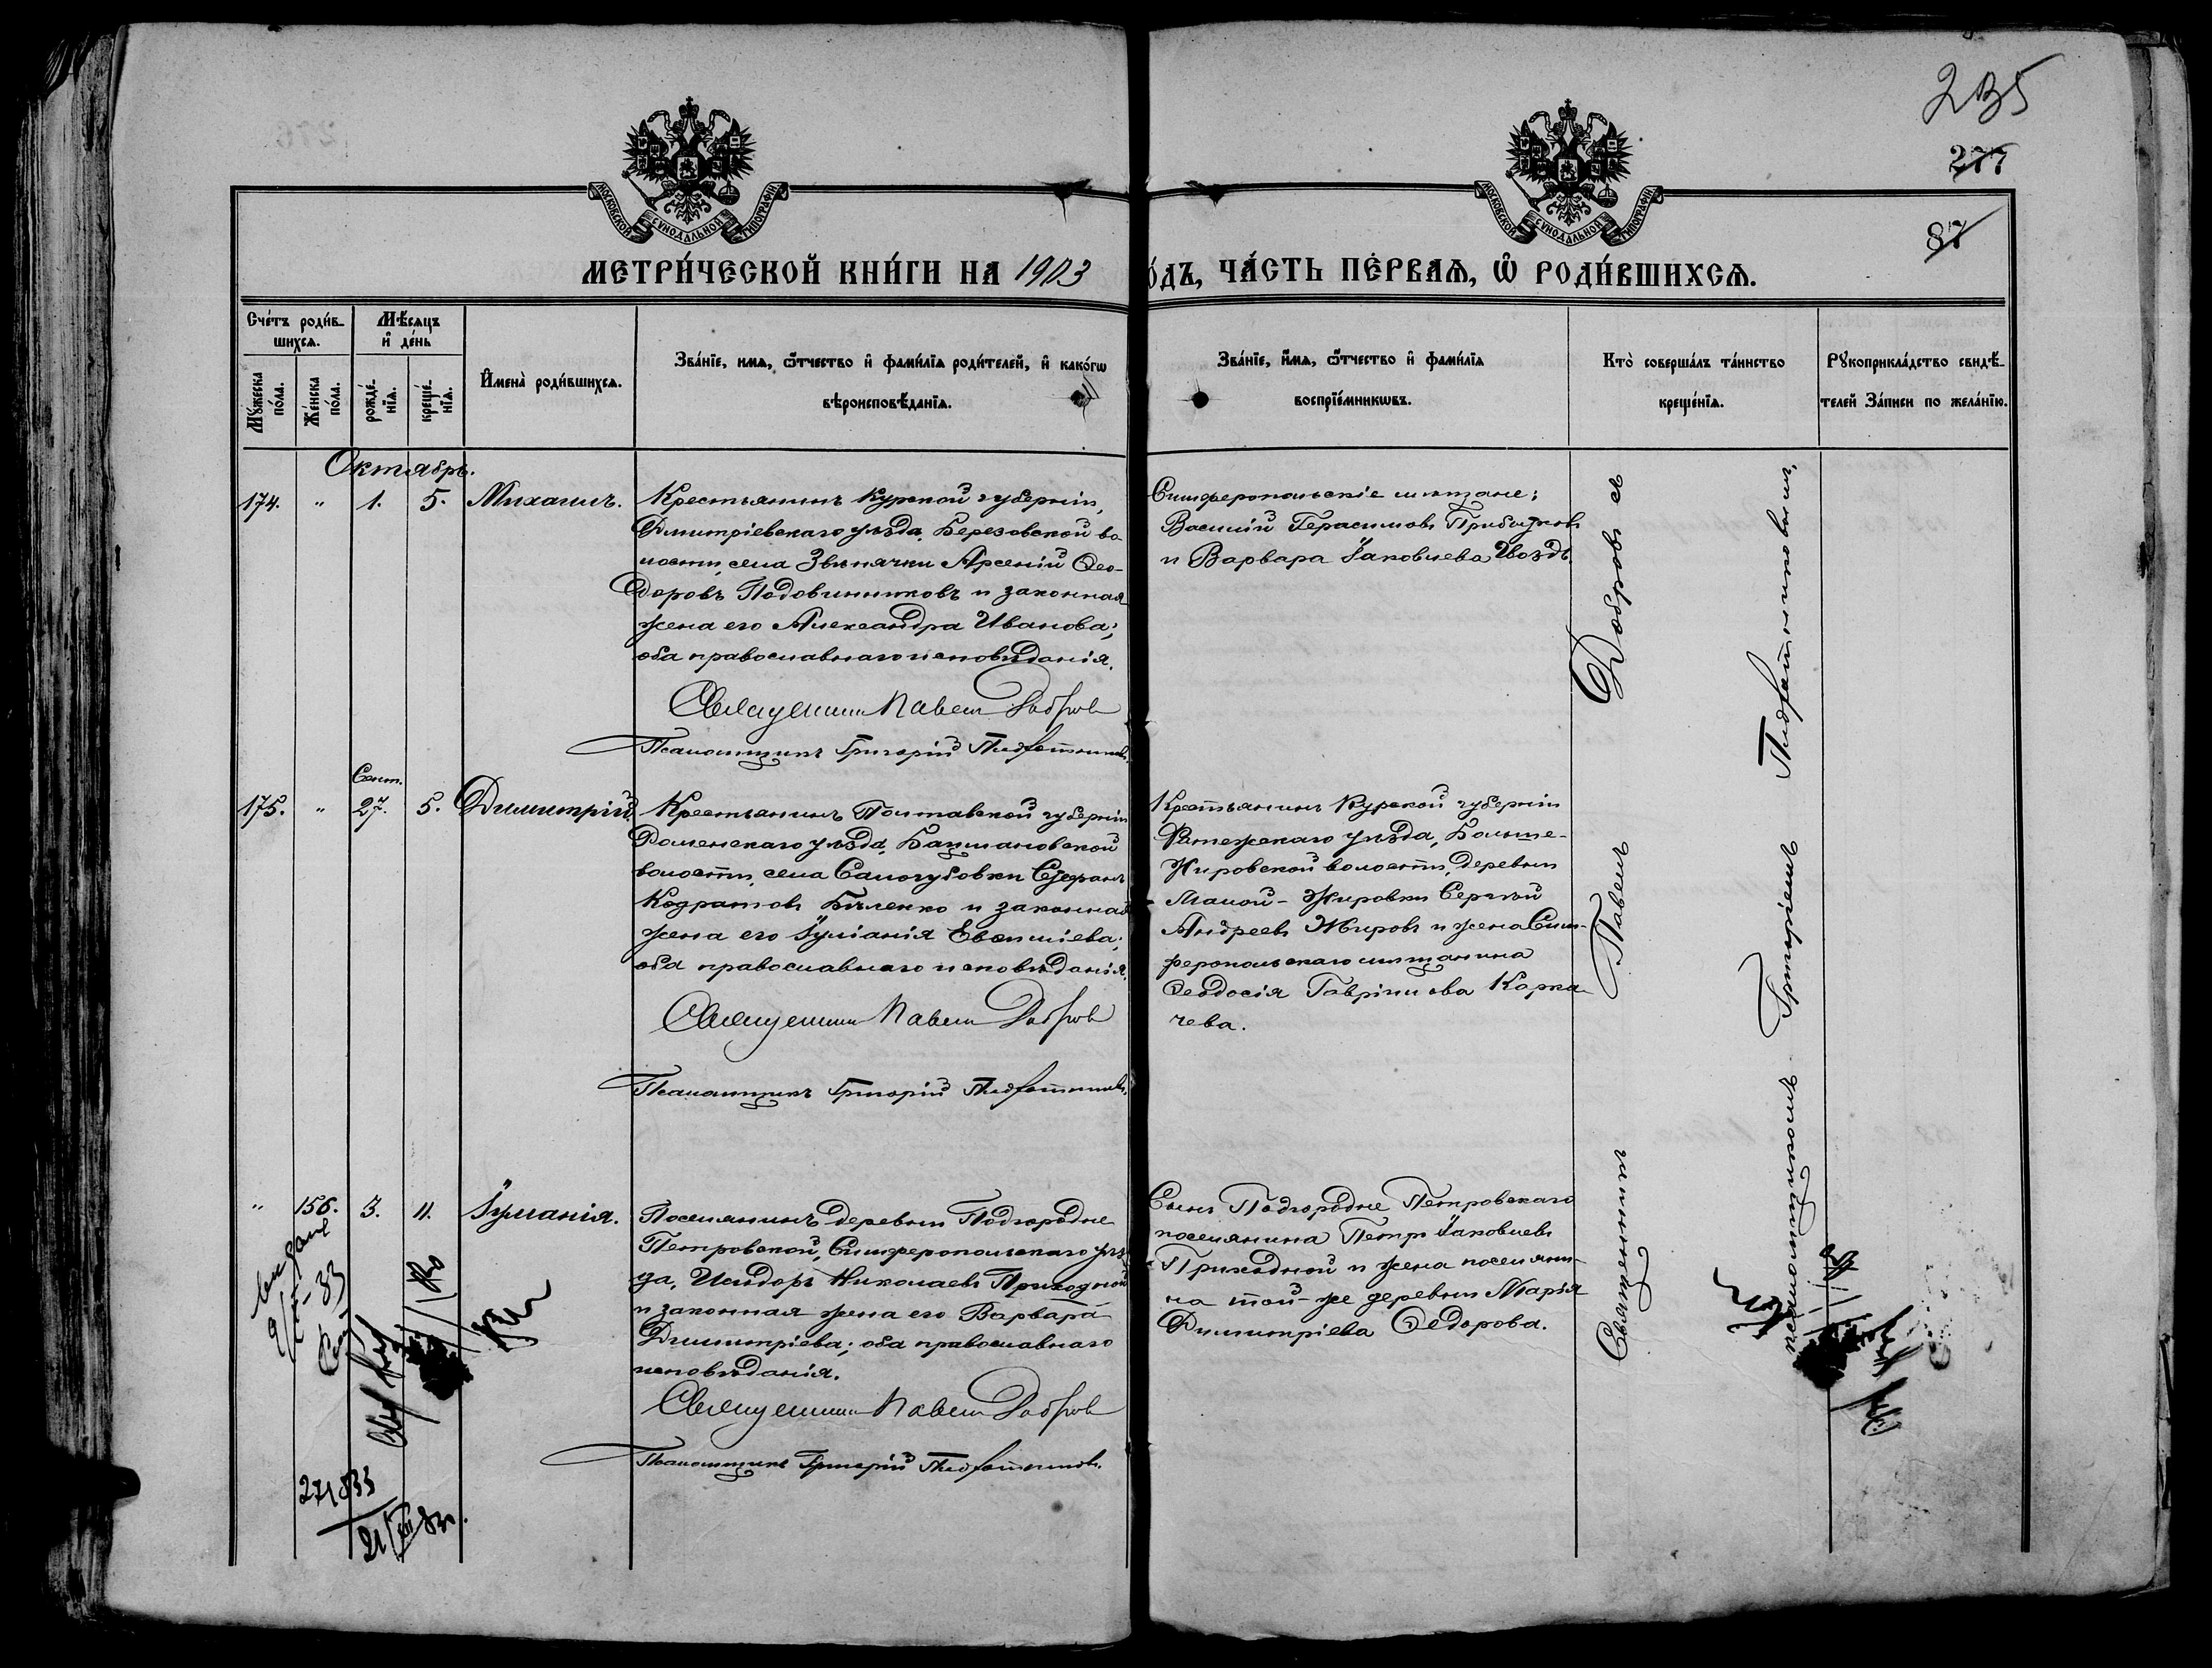 235
277
87
МОСКОВСКОЙ СУНОДАЛЬНОЙ ТИПОГРАФІИ
МОСКОВСКОЙ СУНОДАЛЬНОЙ ТИПОГРАФІИ
МЕТРИ́ЧЕСКОЙ КНИ́ГИ НА 1903
О́ДЪ, ЧА́СТЬ ПЕ́РВАѦ, Ѡ҆ РОДИ́ВШИХСѦ.
Сче́тъ роди́в-
шихсѧ.
Мѣ́сѧцъ
и҆ де́нь
Мꙋ́жеска
по́ла.
Же́нска
по́ла.
рожде́-
нїѧ.
креще́-
нїѧ.
И҆мена̀ роди́вшихсѧ.
Зва́нїе, имѧ, ѻ҆́тчество и҆ фамилїѧ роди́телей, и҆ како́гѡ
вѣроисповѣ́данїѧ.
Зва́нїе, и҆́мѧ, ѻ҆́тчество и҆ фами́лїѧ
воспрїе́мникѡвъ.
Кто̀ соверша́лъ та́инство
креще́нїѧ.
Рꙋкоприкла́дство свидѣ́-
телей За́писи по жела́нїю.
Октябрь.
174. " 1. 5. Михаилъ.
Крестьянинъ Курской губерніи,
Димитріевскаго уѣзда, Березовской во-
лости, села Звѣнячки Арсеній Ѳео-
доровъ Подовинниковъ и законная
жена его Александра Иванова;
оба православнаго исповѣданія.
Священникъ Павелъ Добровъ
Псаломщикъ Григорій
Симферопольскіе мѣщане:
Василій Герасимовъ Прибытковъ
и Варвара Іаковлева Гвоздь.
Сент.
175. " 27. 5. Димитрій.
Крестьянинъ Полтавской губерніи
Роменскаго уѣзда, Бацмановской
волости, села Самогубовки Стефанъ
Кодратовъ Бѣленко и законная
жена его Іуліанія Евѳиміева;
оба православнаго исповѣданія.
Священникъ Павелъ Добровъ
Псаломщикъ Григорій
Крестьянинъ Курской губерніи
Фатежскаго уѣзда, Больше-
Жировской волости, деревни
Малой-Жировки Сергѣй
Андреевъ Жировъ и жена Сим-
феропольскаго мѣщанина
Ѳеодосія Гавріилова Карка-
чева.
" 156. 3. 11. Іуліанія.
Поселянинъ деревни Подгородне
Петровской, Симферопольскаго уѣз-
да, Исидоръ Николаевъ Приходной
и законная жена его Варвара
Димитріева; оба православнаго
исповѣданія.
Священникъ Павелъ Добровъ
Псаломщикъ Григорій
Сынъ Подгородне Петровскаго
поселянина Петръ Іаковлевъ
Приходной и жена поселяни-
на той-же деревни Марія
Димитріева Ѳедорова.
Священникъ Павелъ Добровъ съ
псаломщикомъ Григоріемъ